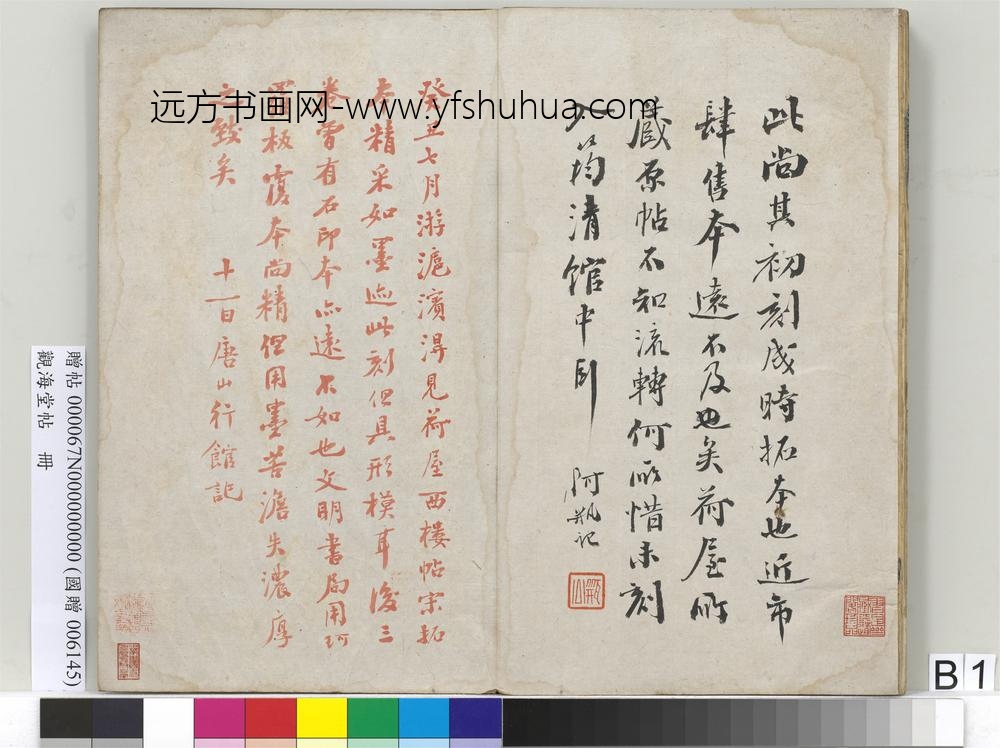 远方书画网-www.yfshuhua.com
此尚其初刻成時拓本也近市
肆售本遠不及也矣荷屋所
藏原帖不知流轉何所惜未刻
入筠清館中耳
阿瓶記
癸丑七月游滬濱得見荷屋西樓帖宋拓
本精采如墨迹此刻但具形模耳後三
卷曾有石印本亦遠不如也文明書局用珂
羅板覆本尚精但用墨苦澹失濃厚
之致矣 十一日唐山行館記
贈帖 000067N000000000 (國贈 006145)
觀海堂帖 冊
B 1